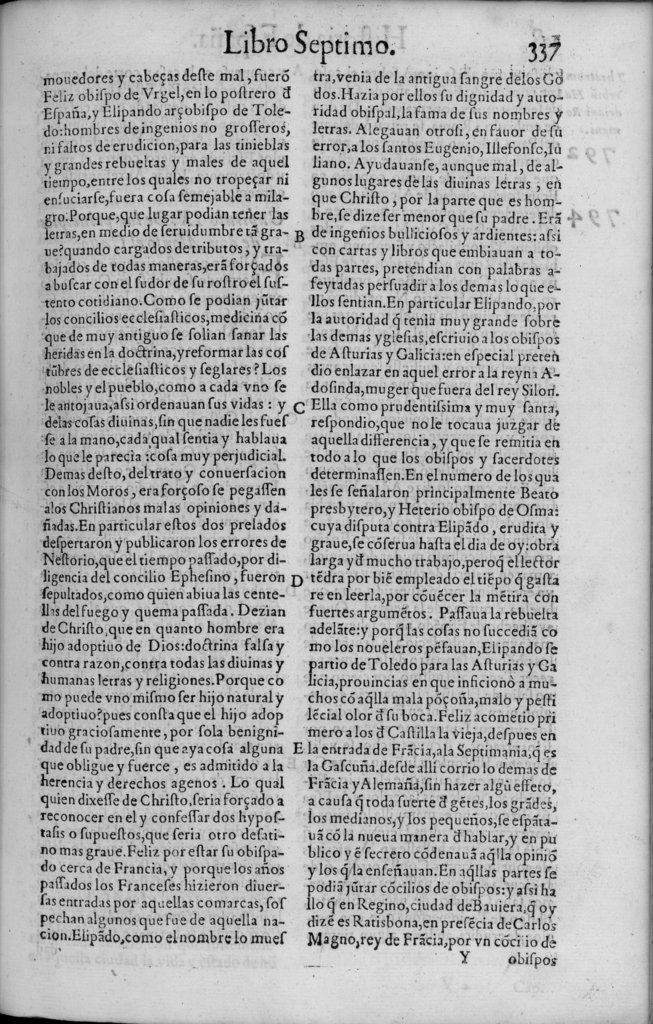 Libro Septimo. 337
mouedores y cabeças deſte mal, fuerõ
Feliz obiſpo de Vrgel, en lo poſtrero đ
Eſpaña, y Elipando arçobiſpo de Tole-
do: hombres de ingenios no groſſeros,
ni faltos de erudicion, para las tinieblas
y grandes rebueltas y males de aquel
tiempo, entre los quales no tropeçar ni
enſuciarſe, fuera coſa ſemejable a mila-
gro. Porque, que lugar podian tener las
letras, en medio de ſeruidumbre tã gra-
ue? quando cargados de tributos, y tra-
bajados de todas maneras, erã forçados
a buſcar con el ſudor de ſu roſtro el ſuſ-
tento cotidiano. Como ſe podian jũtar
los concilios eccleſiaſticos, medicina cõ
que de muy antiguo ſe ſolian ſanar las
heridas en la doctrina, y reformar las coſ
tũbres de eccleſiaſticos y ſeglares? Los
nobles y el pueblo, como a cada vno ſe
le antojaua, aſsi ordenauan ſus vidas: y
delas coſas diuinas, ſin que nadie les fueſ
ſe a la mano, cada qual ſentia y hablaua
lo que le parecia: coſa muy perjudicial.
Demas deſto, del trato y conuerſacion
con los Moros, era forçoſo ſe pegaſſen
alos Chriſtianos malas opiniones y da-
ñadas. En particular eſtos dos prelados
deſpertaron y publicaron los errores de
Neſtorio, que el tiempo paſſado, por di-
ligencia del concilio Epheſino, fueron
ſepultados, como quien abiua las cente-
llas del fuego y quema paſſada. Dezian
de Chriſto, que en quanto hombre era
hijo adoptiuo de Dios: doctrina falſa y
contra razon, contra todas las diuinas y
humanas letras y religiones. Porque co
mo puede vno miſmo ſer hijo natural y
adoptiuo? pues conſta que el hijo adop
tiuo gracioſamente, por ſola benigni-
dad de ſu padre, ſin que aya coſa alguna
que obligue y fuerce, es admitido a la
herencia y derechos agenos. Lo qual
quien dixeſſe de Chriſto, ſeria forçado a
reconocer en el y confeſſar dos hypoſ-
taſis o ſupueſtos, que ſeria otro deſati-
no mas graue. Feliz por eſtar ſu obiſpa-
do cerca de Francia, y porque los años
paſſados los Franceſes hizieron diuer-
ſas entradas por aquellas comarcas, ſoſ
pechan algunos que fue de aquella na-
cion. Elipãdo, como el nombre lo mueſ
B
C
D
E
tra, venia de la antigua ſangre delos Go
dos. Hazia por ellos ſu dignidad y auto-
ridad obiſpal, la fama de ſus nombres y
letras. Alegauan otroſi, en fauor de ſu
error, a los ſantos Eugenio, Illefonſo, Iu
liano. Ayudauanſe, aunque mal, de al-
gunos lugares de las diuinas letras, en
que Chriſto, por la parte que es hom-
bre, ſe dize ſer menor que ſu padre. Erã
de ingenios bullicioſos y ardientes: aſsi
con cartas y libros que embiauan a to-
das partes, pretendian con palabras a-
feytadas perſuadir a los demas lo que e-
llos ſentian. En particular Elipando, por
la autoridad q̃ tenia muy grande ſobre
las demas ygleſias, eſcriuio a los obiſpos
de Aſturias y Galicia: en eſpecial preten
dio enlazar en aquel error a la reyna A-
doſinda, muger que fuera del rey Silon.
Ella como prudentiſsima y muy ſanta,
reſpondio, que no le tocaua juzgar de
aquella differencia, y que ſe remitia en
todo a lo que los obiſpos y ſacerdotes
determinaſſen. En el numero de los qua
les ſe ſeñalaron principalmente Beato
presbytero, y Heterio obiſpo de Oſma:
cuya diſputa contra Elipãdo, erudita y
graue, ſe cõſerua haſta el dia de oy: obra
larga y đ mucho trabajo, peroq̃ el lector
tẽdra por biẽ empleado el tiẽpo q̃ gaſta
re en leerla, por cõuẽcer la mẽtira con
fuertes argumẽtos. Paſſaua la rebuelta
adelãte: y porq̃ las coſas no ſuccediã co
mo los noueleros pẽſauan, Elipando ſe
partio de Toledo para las Aſturias y Ga
licia, prouincias en que inficionò a mu-
chos cõ aq̃lla mala põçoña, malo y peſti
lẽcial olor đ ſu boca. Feliz acometio pri
mero a los đ Caſtilla la vieja, deſpues en
la entrada de Frãcia, ala Septimania, q̃ es
la Gaſcuña. deſde alli corrio lo demas de
Frãcia y Alemaña, ſin hazer algũ effeto,
a cauſa q̃ toda ſuerte đ gẽtes, los grãdes,
los medianos, y los pequeños, ſe eſpãta-
uã cõ la nueua manera đ hablar, y en pu
blico y ẽ ſecreto cõdenauã aq̃lla opiniõ
y los q̃ la enſeñauan. En aq̃llas partes ſe
podiã jũtar cõcilios de obiſpos: y aſsi ha
llo q̃ en Regino, ciudad de Bauiera, q̃ oy
dizẽ es Ratisbona, en preſẽcia de Carlos
Magno, rey de Frãcia, por vn cõcilio de
Y obiſpos